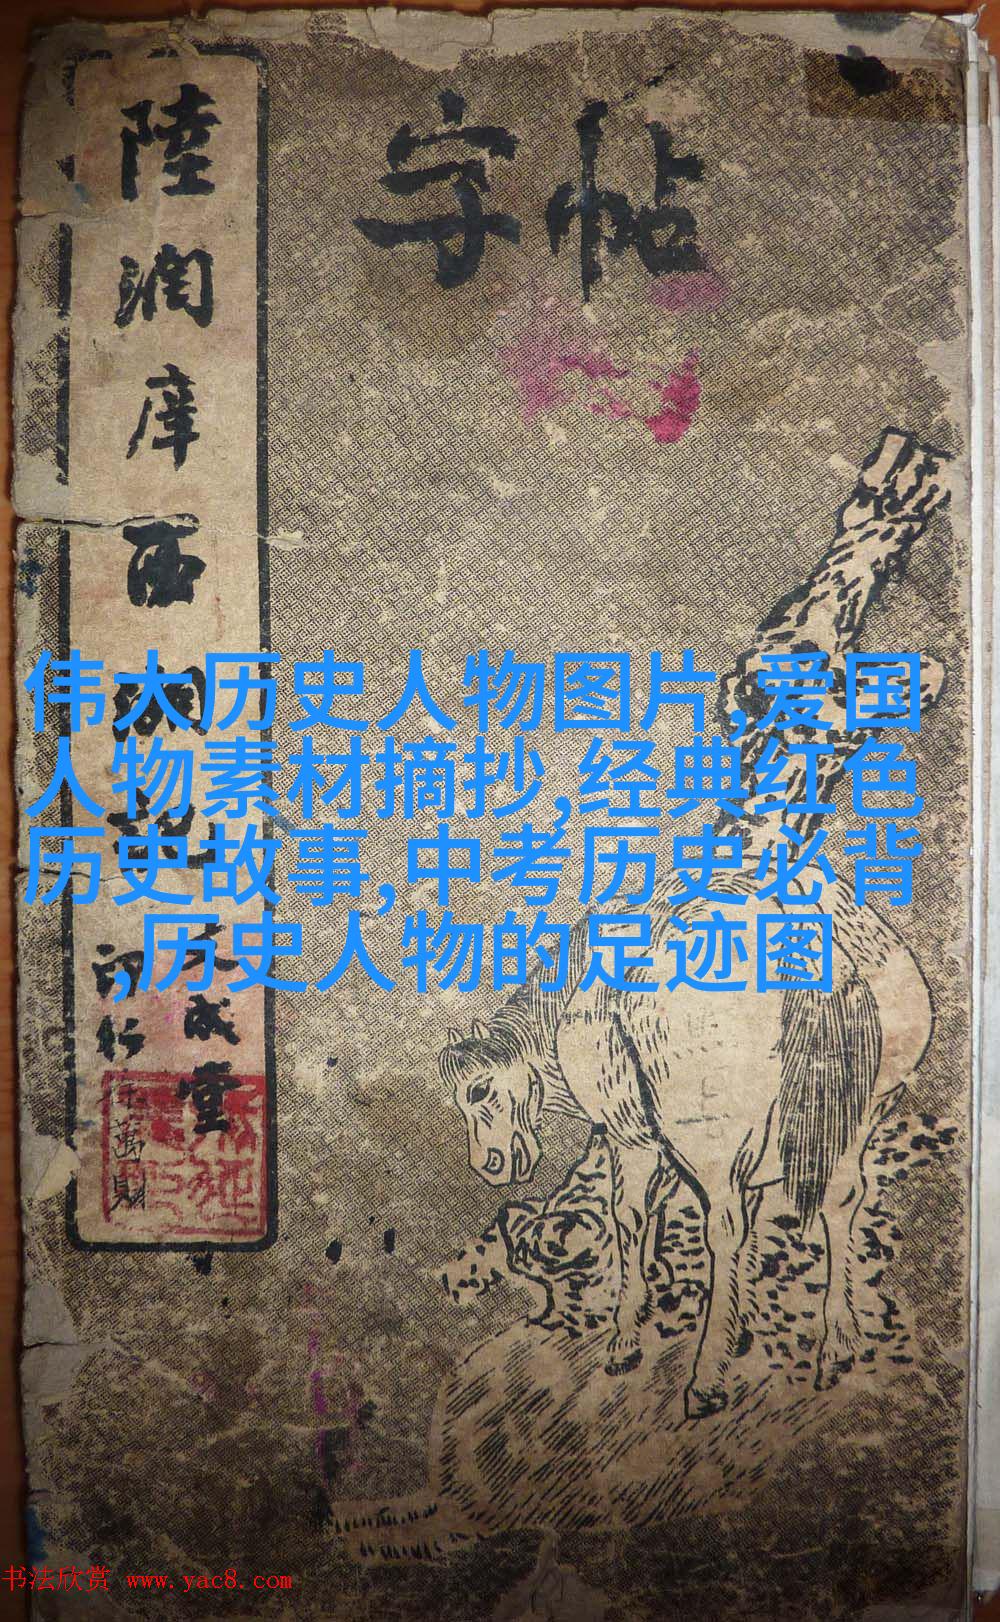 字帖
陸潤庠西湖
成堂
印行
萬財
伟大历史人物图片,爱国
人物素材摘抄,经典红色
历史故事,中考历史必背
,历史人物的足迹图
书法欣赏 www.yac8.com